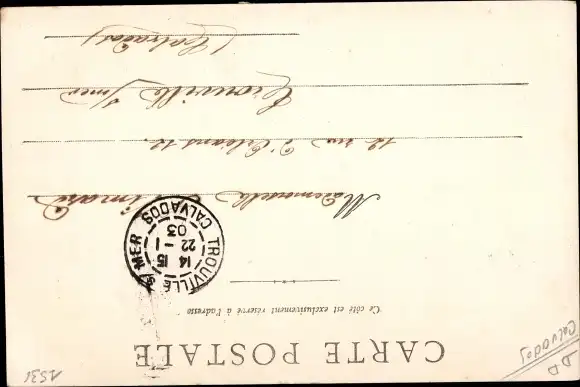 CARTE POSTALE
Ce côté est exclusivement réservé à l'adresse
TROUVILLE S/ MER
14 15
22 - 1
03
CALVADOS
Mademoiselle
12 rue d'Orléans 12
Trouville s/mer
(Calvados)
A531
DD
Calvados